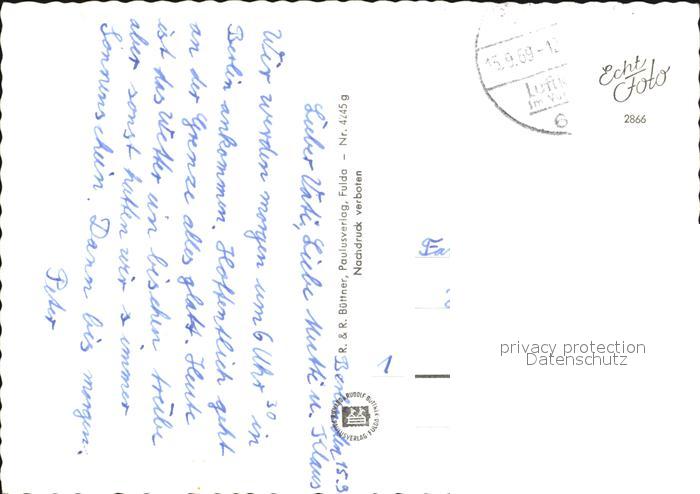 15.9.69-12
Luft
im V
6
Echt
Foto
2866
R. & R. Büttner, Paulusverlag, Fulda – Nr. 4245 g
Nachdruck verboten
15.9
Lieber Vati, Liebe Mutti u. Klaus
Wir werden morgen um 6 Uhr 30 in
Berlin ankommen. Hoffentlich geht
an der Grenze alles glatt. Heute
ist das Wetter ein bischen trübe
aber sonst hatten wir's immer
Sonnenschein. Dann bis morgen.
Peter
Fa
1
RUDOLF BÜTTNER
PAULUSVERLAG FULDA
privacy protection
Datenschutz